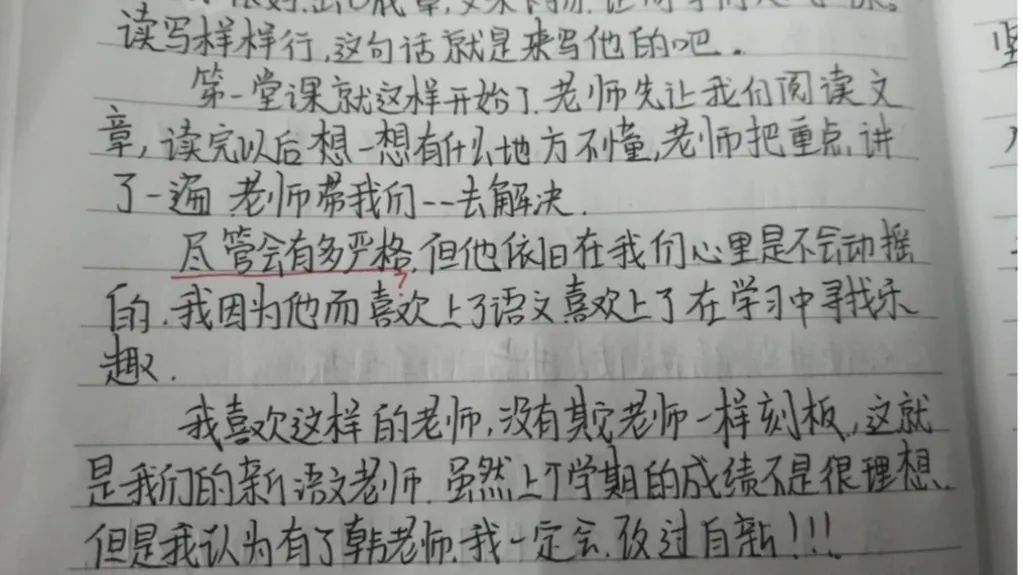 读写样样行,这句话就是来写他的吧.
第一堂课就这样开始了.老师先让我们阅读文
章,读完以后想一想有什么地方不懂,老师把重点讲
了一遍 老师带我们一一去解决.
尽管会有多严格,但他依旧在我们心里是不会动摇
?
的.我因为他而喜欢上了语文喜欢上了在学习中寻找乐
趣.
我喜欢这样的老师,没有其它老师一样刻板,这就
是我们的新语文老师.虽然上个学期的成绩不是很理想.
但是我认为有了韩老师.我一定会.改过自新!!!